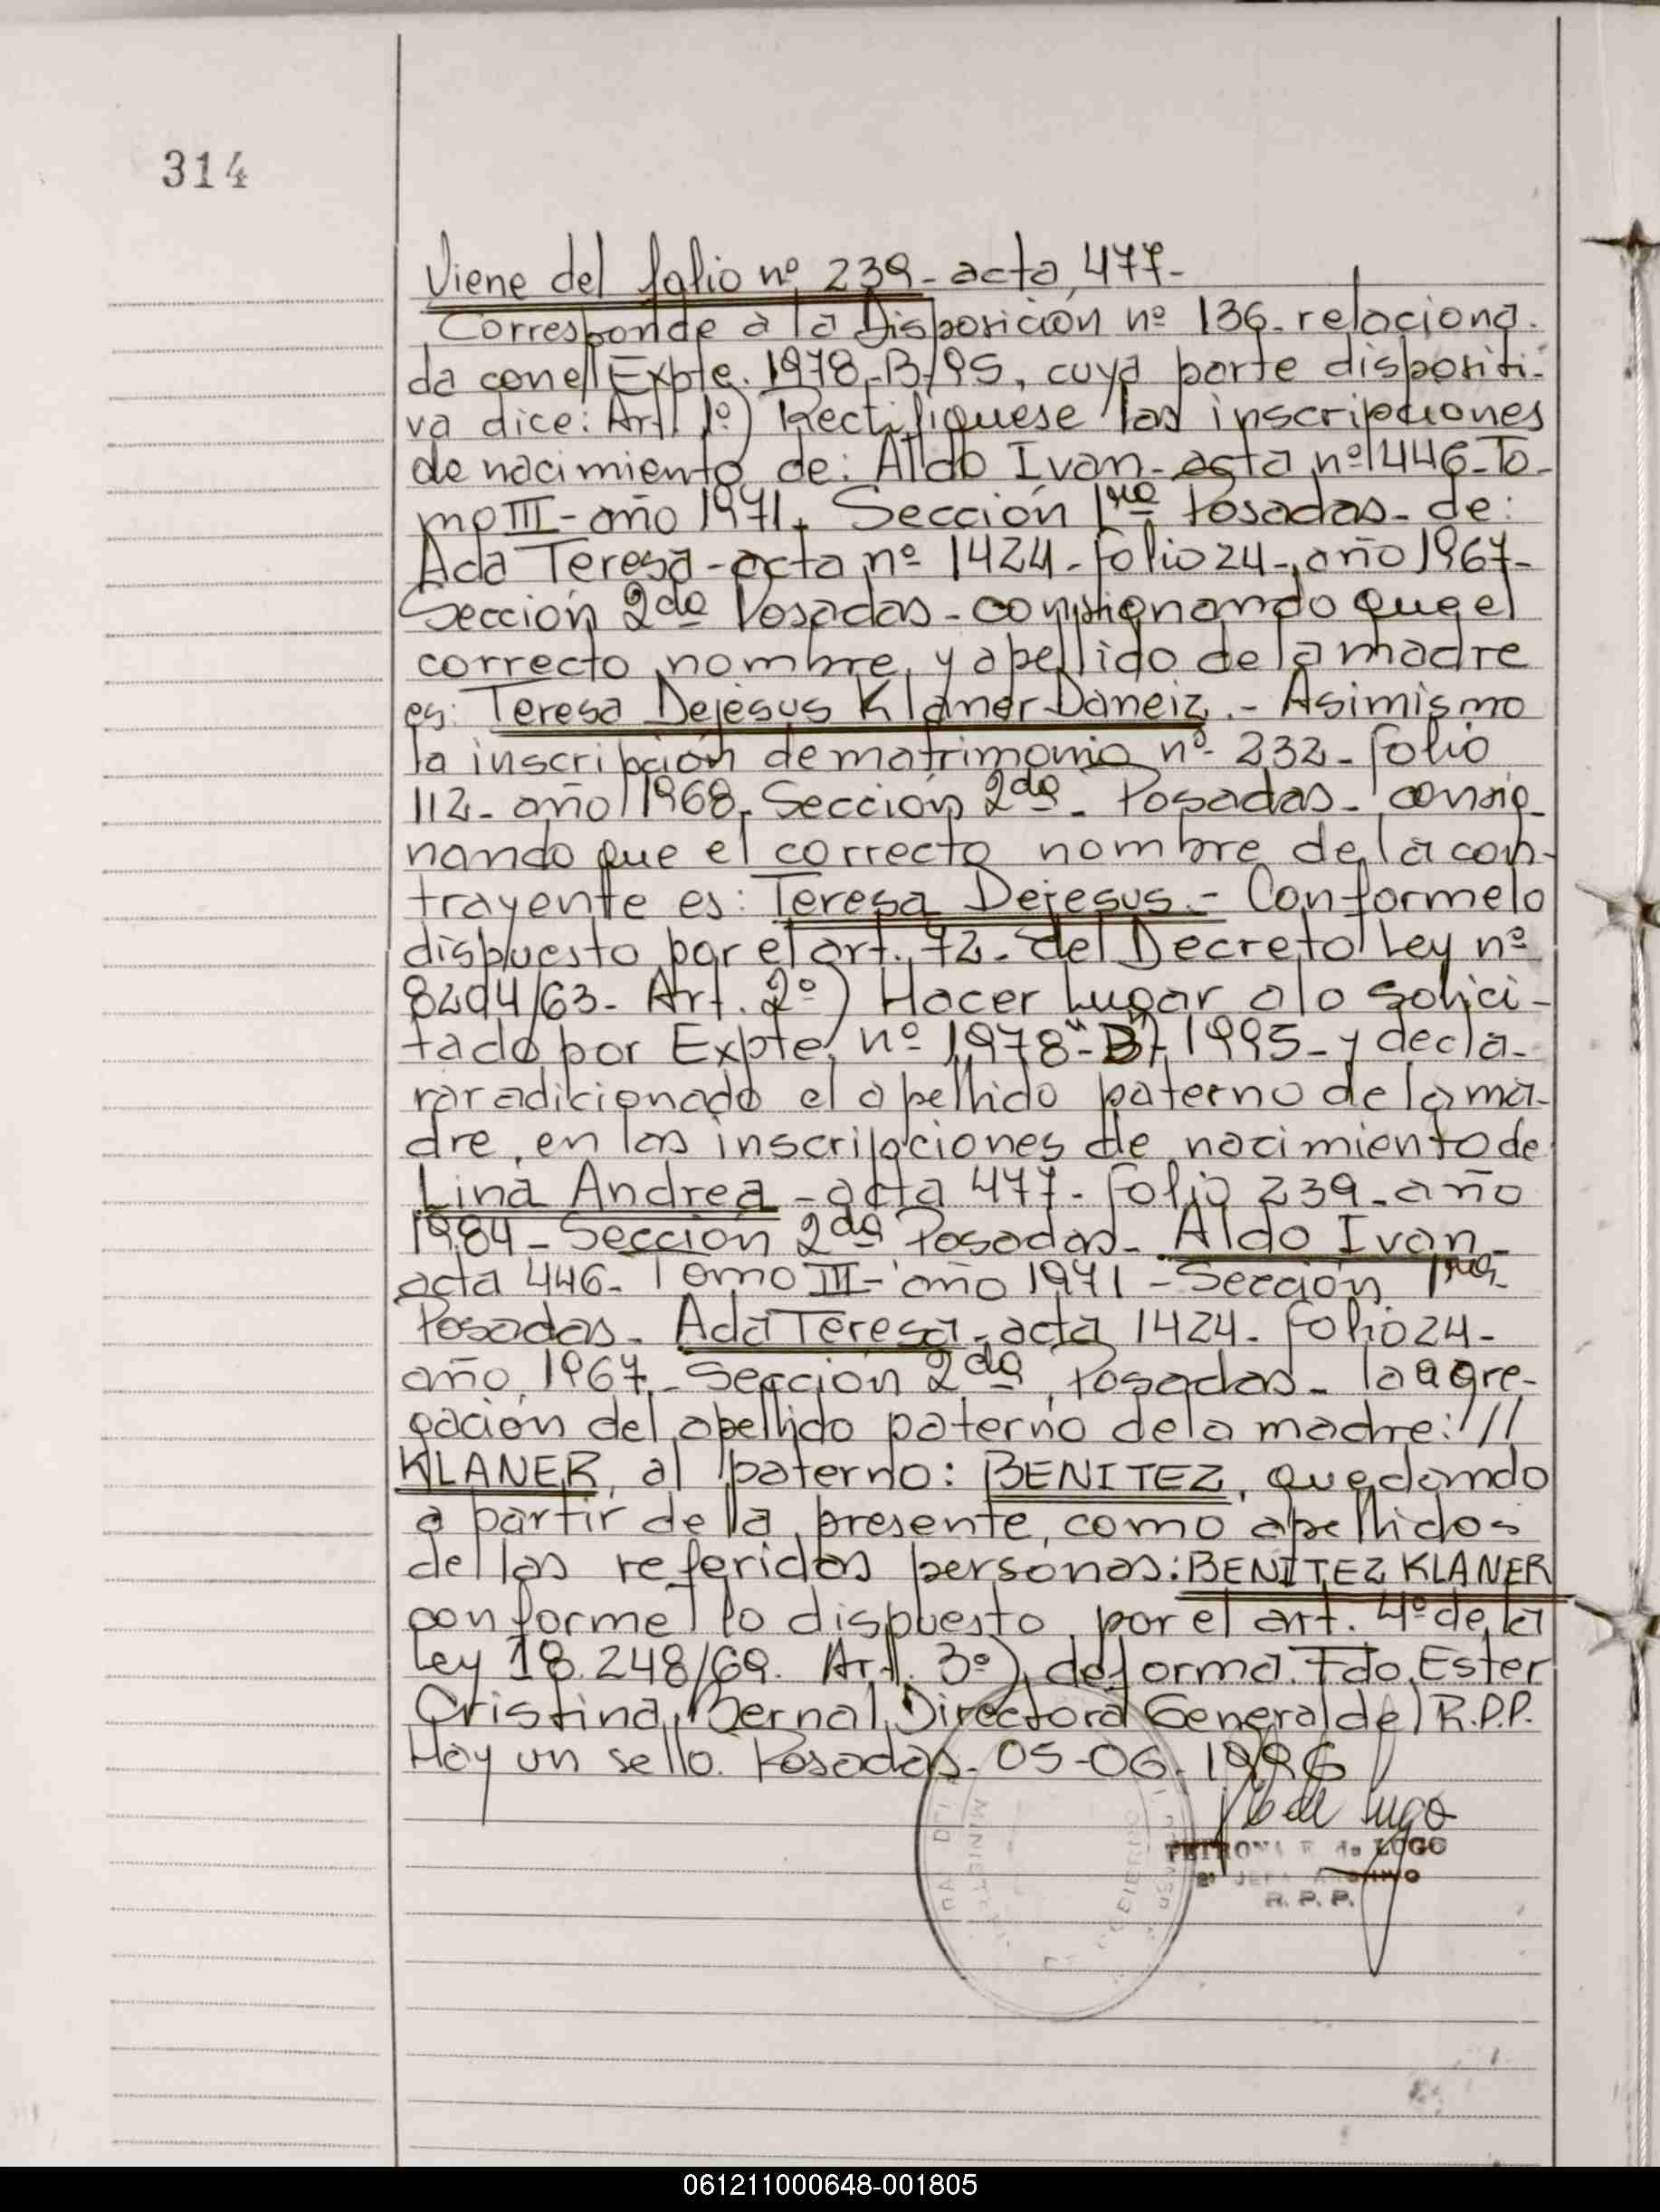 314
Viene del folio nº 239- acta 477-
Corresponde a la Disposición nº 136- relaciona-
da con el Expte. 1978-B/95, cuya parte dispositi-
va dice: Art. 1º) Rectifíquese las inscripciones
de nacimiento de: Aldo Ivan- acta nº 446- To-
mo III- año 1971. Sección 1ra Posadas- de:
Ada Teresa- acta nº 1424- folio 24-, año 1967-
Sección 2da Posadas- consignando que el
correcto nombre y apellido de la madre
es: Teresa Dejesus Klaner Daneiz.- Asimismo
la inscripción de matrimonio nº- 232- folio
112- año 1968. Sección 2da- Posadas- consig-
nando que el correcto nombre de la con-
trayente es: Teresa Dejesus.- Conforme lo
dispuesto por el art. 72- del Decreto Ley nº
8204/63- Art. 2º) Hacer Lugar a lo solici-
tado por Expte. nº 1978-"B"/1995- y decla-
rar adicionado el apellido paterno de la ma-
dre, en las inscripciones de nacimiento de
Lina Andrea- acta 477- folio 239- año
1984- Sección 2da Posadas- Aldo Ivan-
acta 446- Tomo III- año 1971- Sección 1ra-
Posadas- Ada Teresa- acta 1424- folio 24-
año 1967- Sección 2da, Posadas- la agre-
gación del apellido paterno de la madre: //
KLANER, al paterno: BENITEZ, quedando
a partir de la presente, como apellidos
de las referidas personas: BENITEZ KLANER
conforme lo dispuesto por el art. 4º de la
Ley 18.248/69. Art. 3º) de forma. Fdo. Ester
Cristina Bernal, Directora General del R.P.P.
Hay un sello. Posadas- 05-06-1996
PETRONA de LUGO
R. P. P.
061211000648-001805